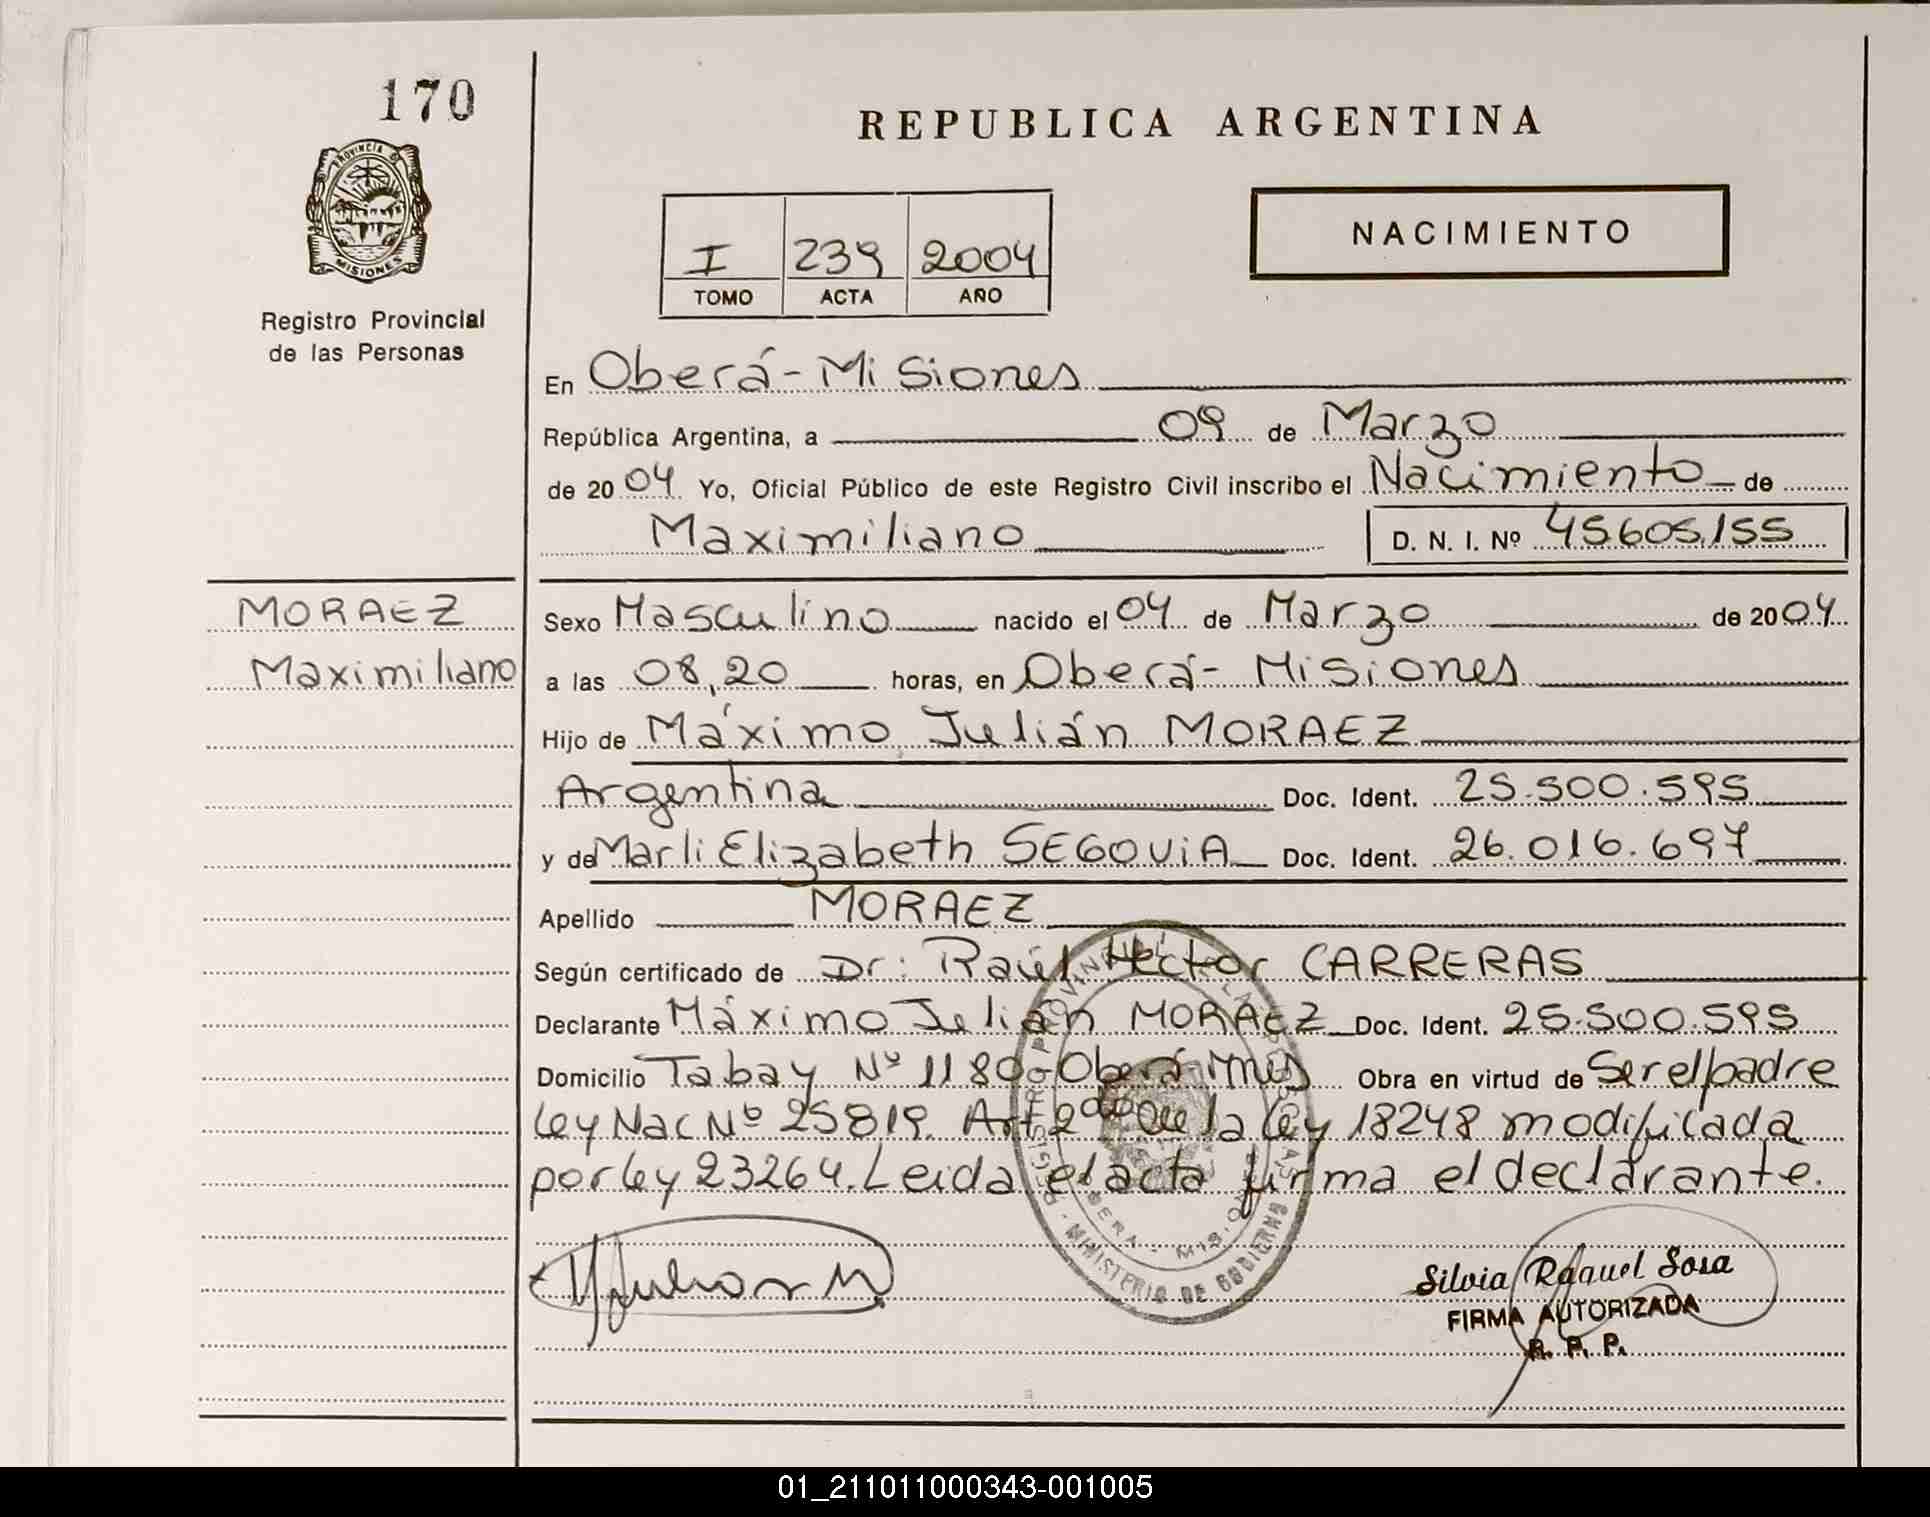 170
PROVINCIA DE
MISIONES
Registro Provincial
de las Personas
REPUBLICA ARGENTINA
I 239 2004
TOMO ACTA AÑO
NACIMIENTO
En Oberá - Misiones
República Argentina, a 09 de Marzo
de 2004 Yo, Oficial Público de este Registro Civil inscribo el Nacimiento de
Maximiliano D. N. I. Nº 45605155
MORAEZ
Maximiliano
Sexo Masculino nacido el 04 de Marzo de 2004
a las 08,20 horas, en Oberá - Misiones
Hijo de Máximo Julián MORAEZ
Argentina Doc. Ident. 25.500.595
y de Marli Elizabeth SEGOViA Doc. Ident. 26.016.697
Apellido MORAEZ
Según certificado de Dr: Raúl Héctor CARRERAS
Declarante Máximo Julián MORAEZ Doc. Ident. 25.500.595
Domicilio Tabay Nº 1180-Oberá Mnes Obra en virtud de Ser el padre
Ley Nac Nº 25819. Art 2do de la Ley 18248 modificada
por ley 23264. Leida el acta firma el declarante.
REGISTRO PROVINCIAL DE LAS PERSONAS
OBERA - MIS.
MINISTERIO DE GOBIERNO
Silvia Raquel Sosa
FIRMA AUTORIZADA
R. P. P.
01_211011000343-001005